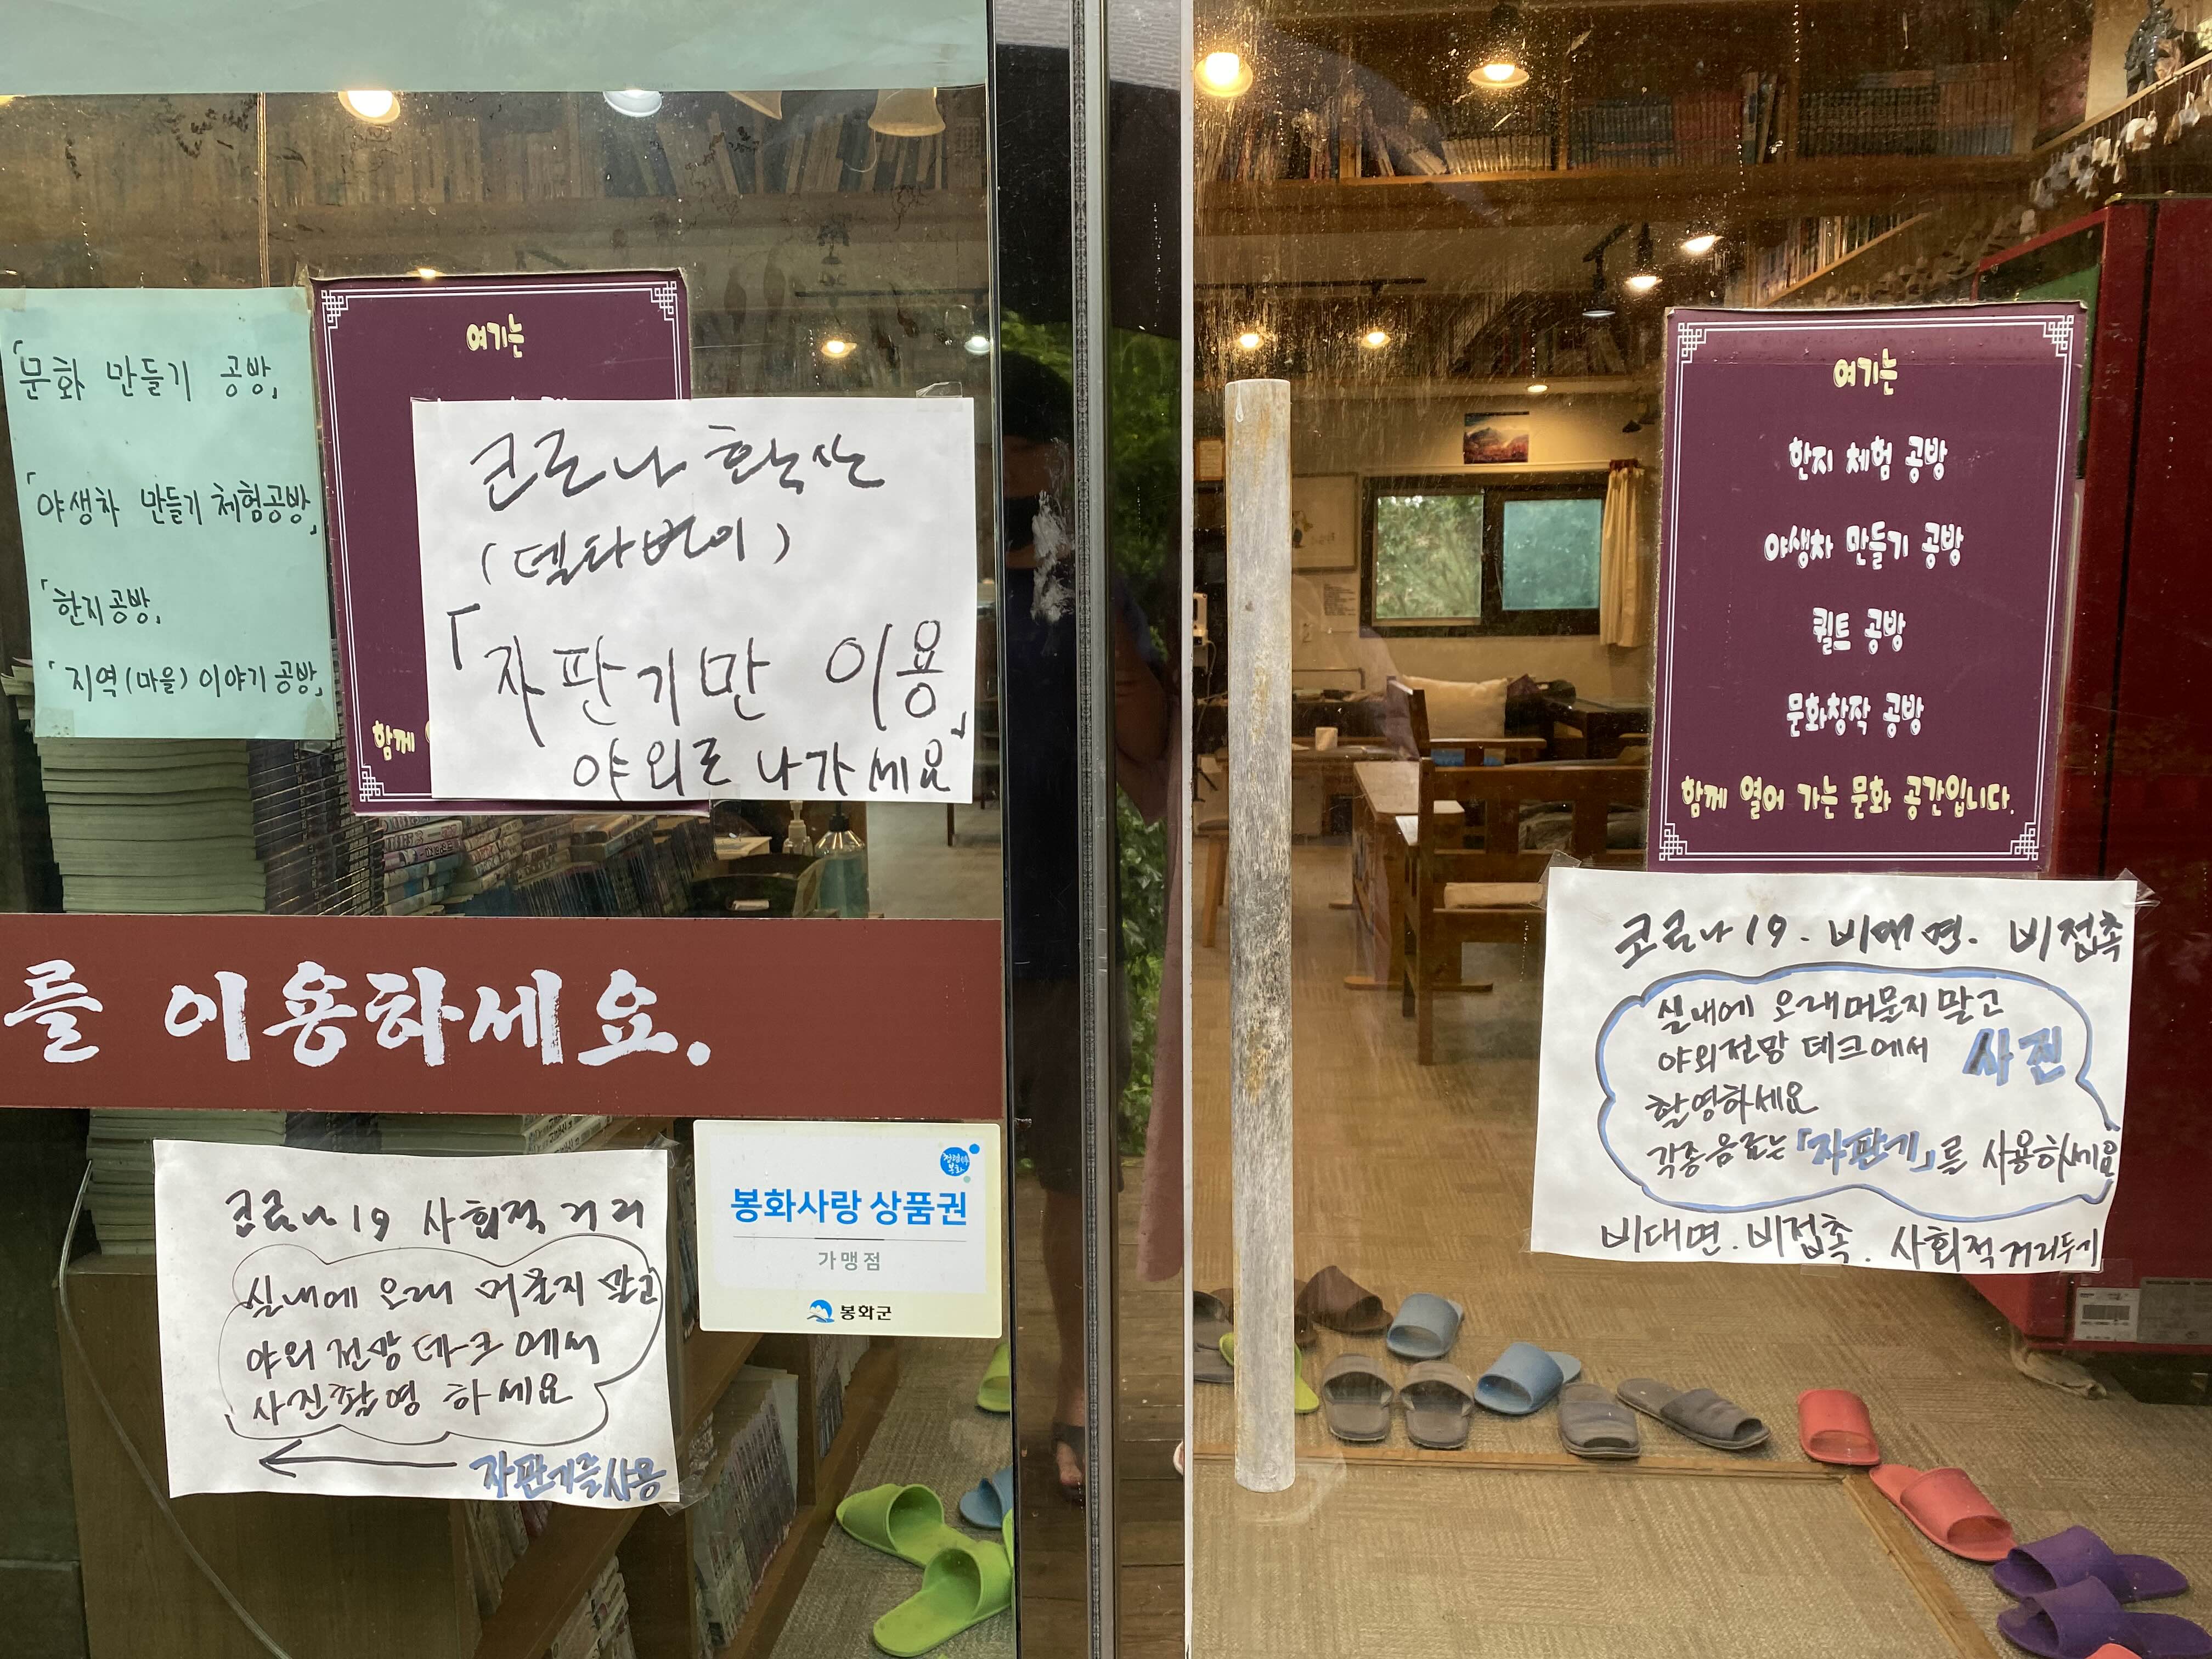 「문화 만들기 공방」
「야생차 만들기 체험공방」
「한지공방」
「지역(마을) 이야기 공방」
여기는
함께
코로나 확산
(델타변이)
「자판기만 이용」
야외로 나가세요
를 이용하세요.
코로나19 사회적 거리
실내에 오래 머물지 말고
야외 전망 데크에서
사진촬영 하세요
←
자판기를 사용
봉화사랑 상품권
가맹점
봉화군
여기는
한지 체험 공방
야생차 만들기 공방
퀼트 공방
문화창작 공방
함께 열어 가는 문화 공간입니다.
코로나19. 비대면. 비접촉
실내에 오래머물지 말고
야외전망 데크에서 사진
촬영하세요
각종음료는 「자판기」를 사용하세요
비대면. 비접촉. 사회적거리두기